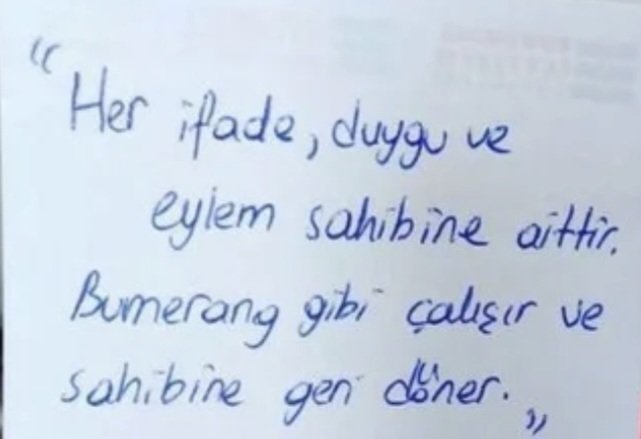 “Her ifade, duygu ve
eylem sahibine aittir.
Bumerang gibi çalışır ve
sahibine geri döner.”